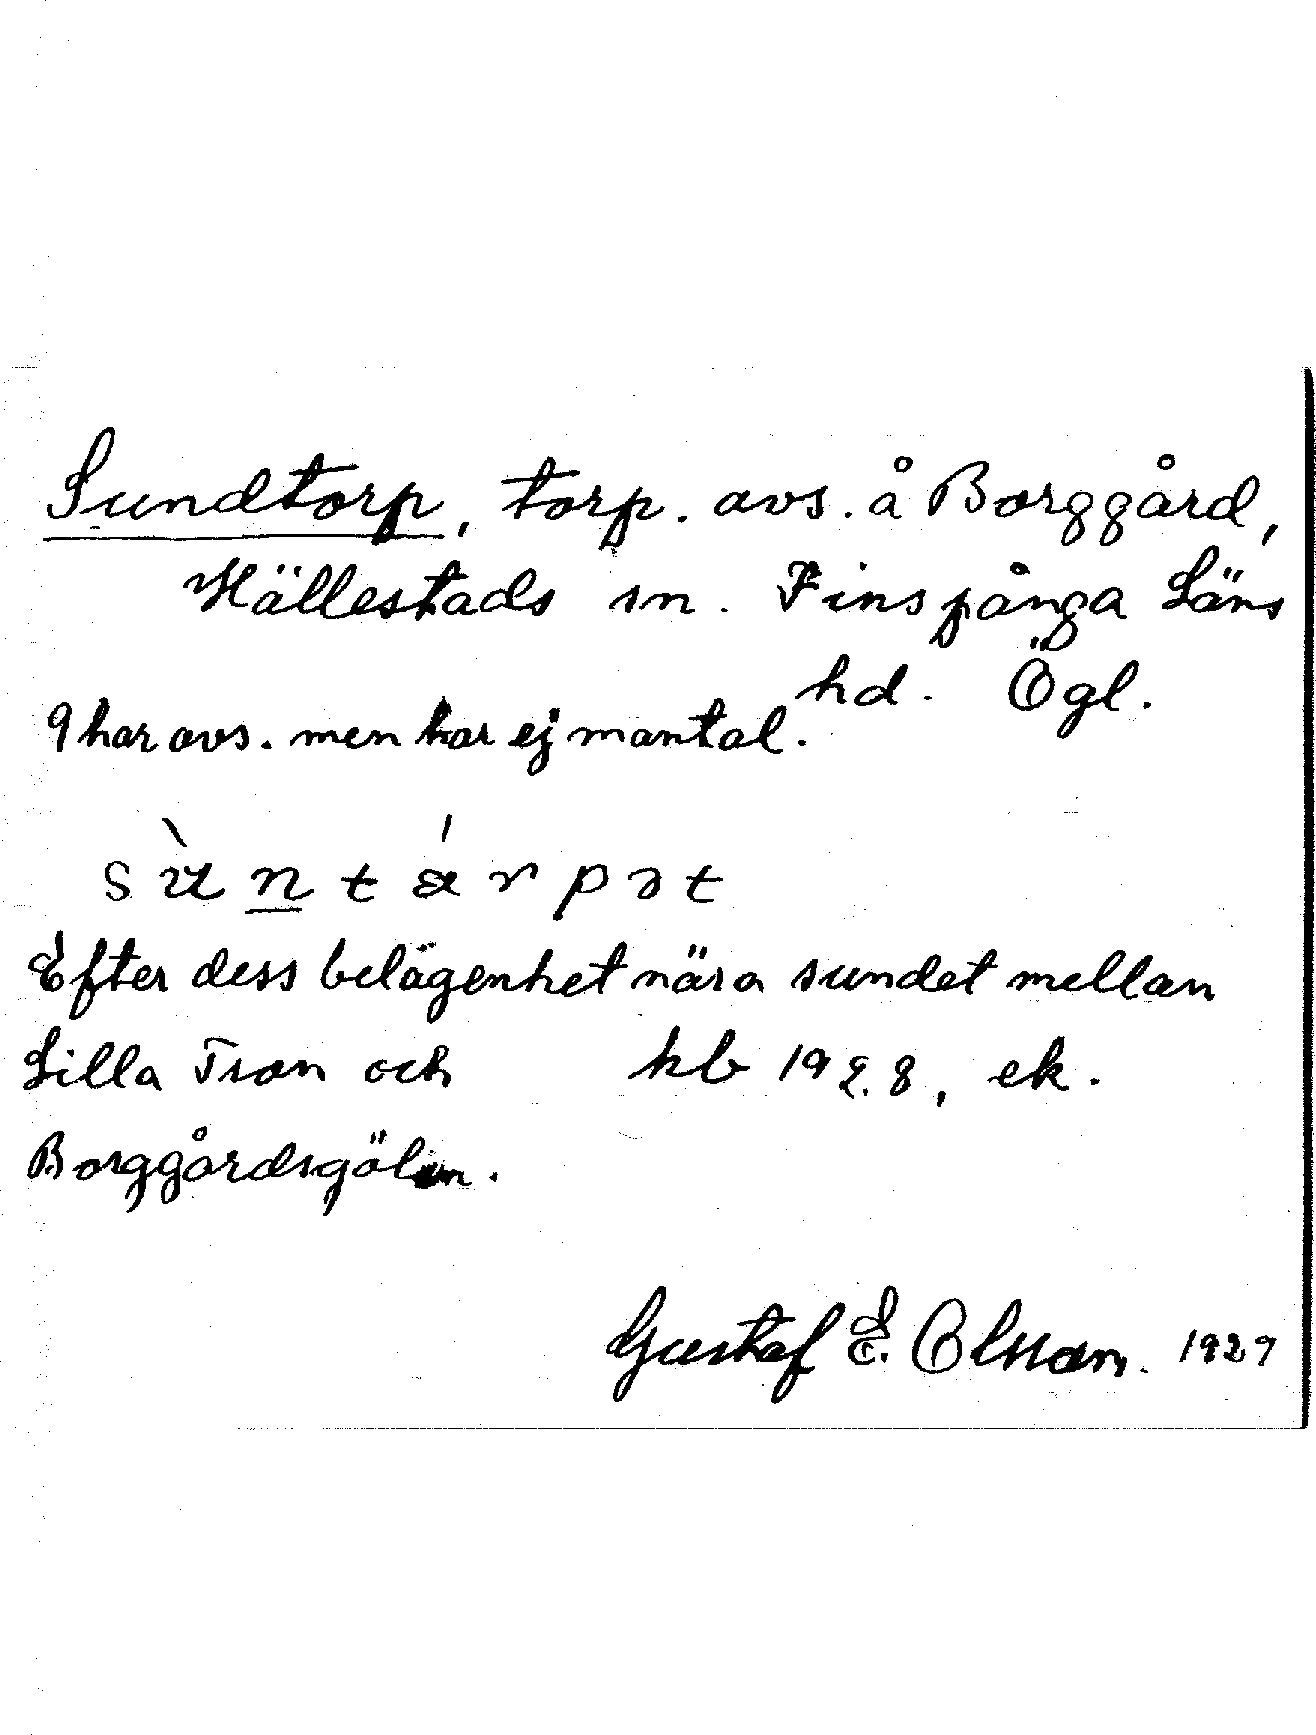 Sundtorp, torp. avs. å Borggård,
Hällestads sn. Finspånga Läns
hd. Ögl.
9 har avs. men har ej mantal.
sùntárpət
Efter dess belägenhet nära sundet mellan
Lilla Tron och kb 1928, ek.
Borggårdsgölen.
Gustaf E. Olsson. 1929